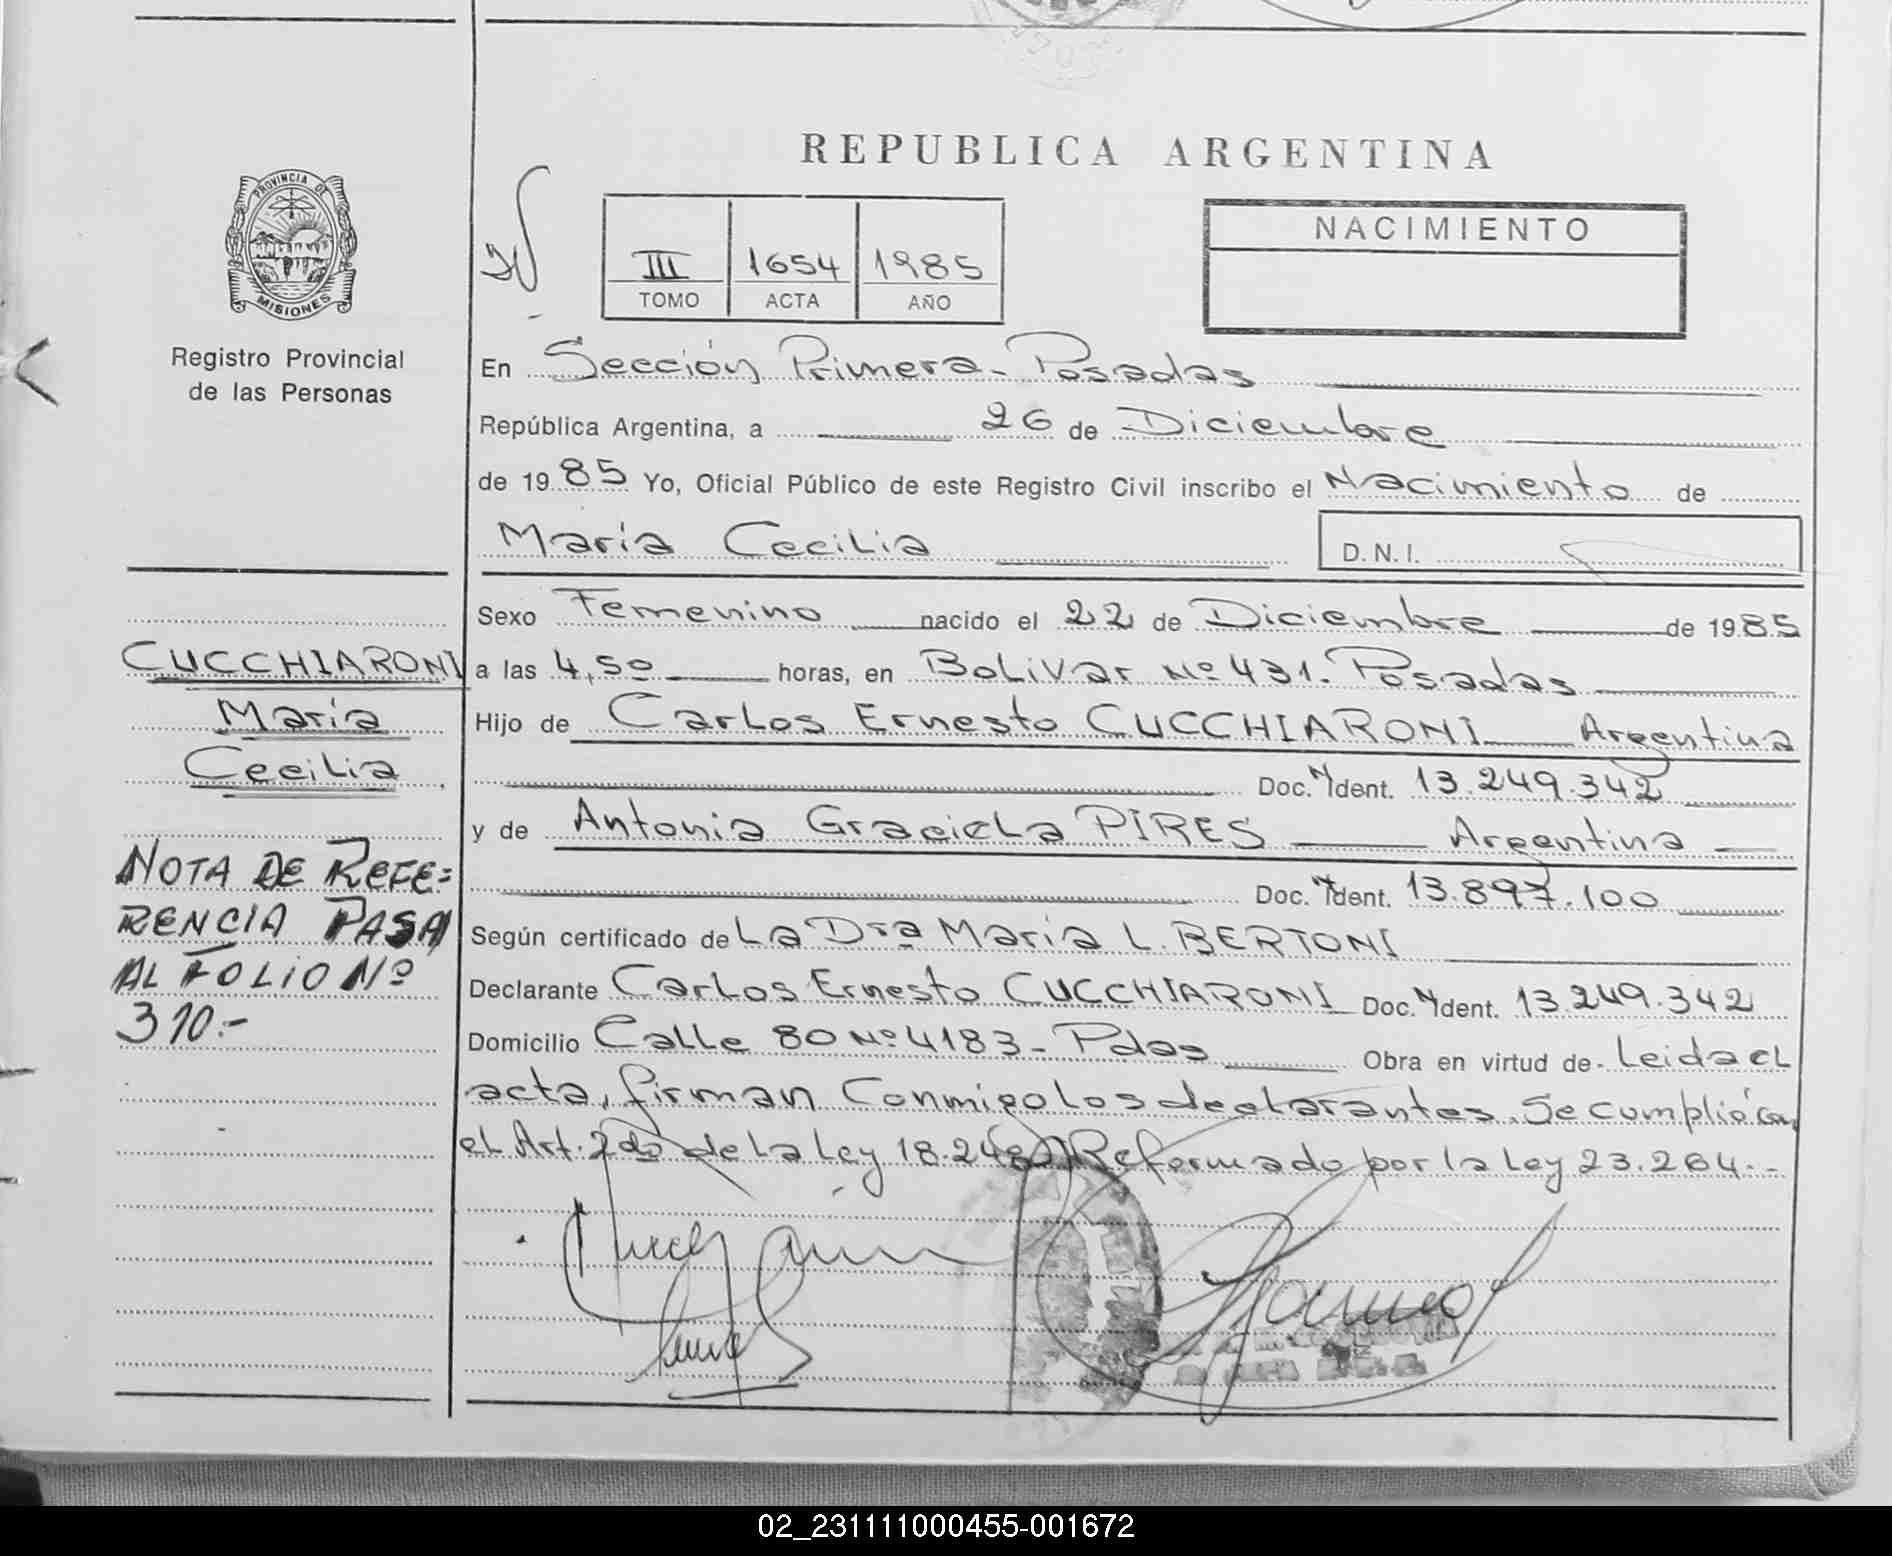 REPUBLICA ARGENTINA
PROVINCIA DE
MISIONES
Registro Provincial
de las Personas
III 1654 1985
TOMO ACTA AÑO
NACIMIENTO
En Sección Primera - Posadas
República Argentina, a 26 de Diciembre
de 1985 Yo, Oficial Público de este Registro Civil inscribo el Nacimiento de
María Cecilia D.N.I.
Sexo Femenino nacido el 22 de Diciembre de 1985
a las 4,50 horas, en Bolivar Nº 431. Posadas
Hijo de Carlos Ernesto CUCCHIARONI Argentina
Doc. Ident. 13.249.342
y de Antonia Graciela PIRES Argentina
Doc. Ident. 13.897.100
Según certificado de La Dra María L. BERTONI
Declarante Carlos Ernesto CUCCHIARONI Doc. Ident. 13.249.342
Domicilio Calle 80 Nº 4183 - Pdas Obra en virtud de - Leida el
acta, firman Conmigo los declarantes. Se cumplió con
el Art. 2do de la Ley 18.248 Reformado por la Ley 23.264.-
CUCCHIARONI
María
Cecilia
NOTA DE REFE=
RENCIA PASA
AL FOLIO Nº
310.-
02_231111000455-001672